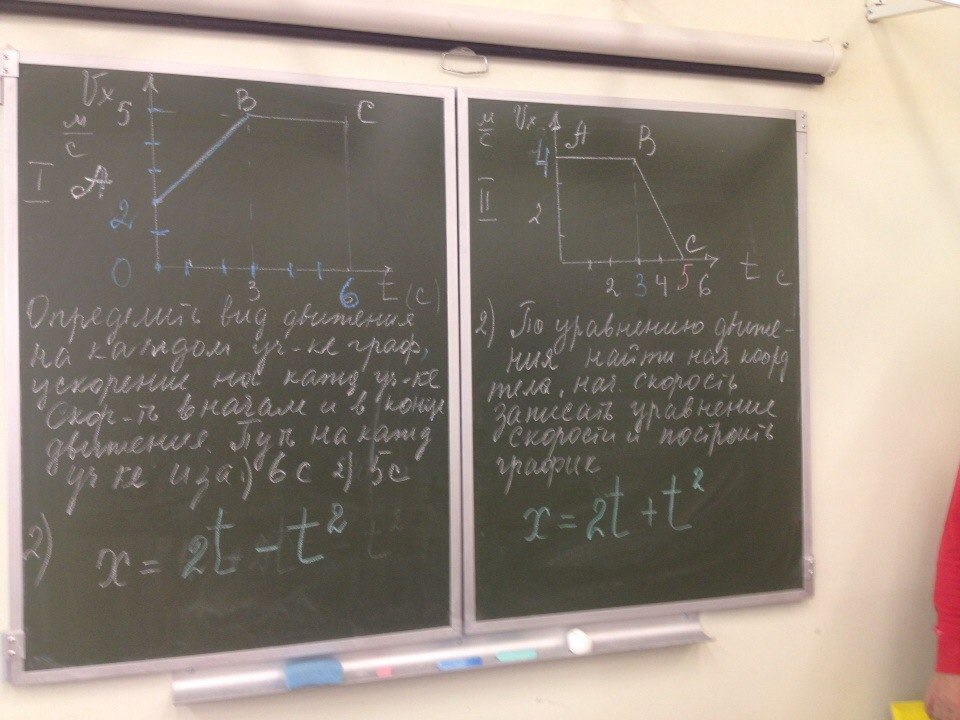 Vx
5
В
С
м/с
I
А
2
0
3
6
t (с)
Определить вид движения
на каждом уч-ке граф,
ускорение на кажд уч-ке
Скор-ть в начал и в конце
движения. Путь на кажд
уч-ке и за 1) 6с 2) 5с
2)
x = 2t - t²
м/с
Vx
А
В
4
II
2
С
2 3 4 5 6
t с
2) По уравнению движе-
ния найти нач коорд
тела, нач. скорость
записать уравнение
скорости и построить
график
x = 2t + t²